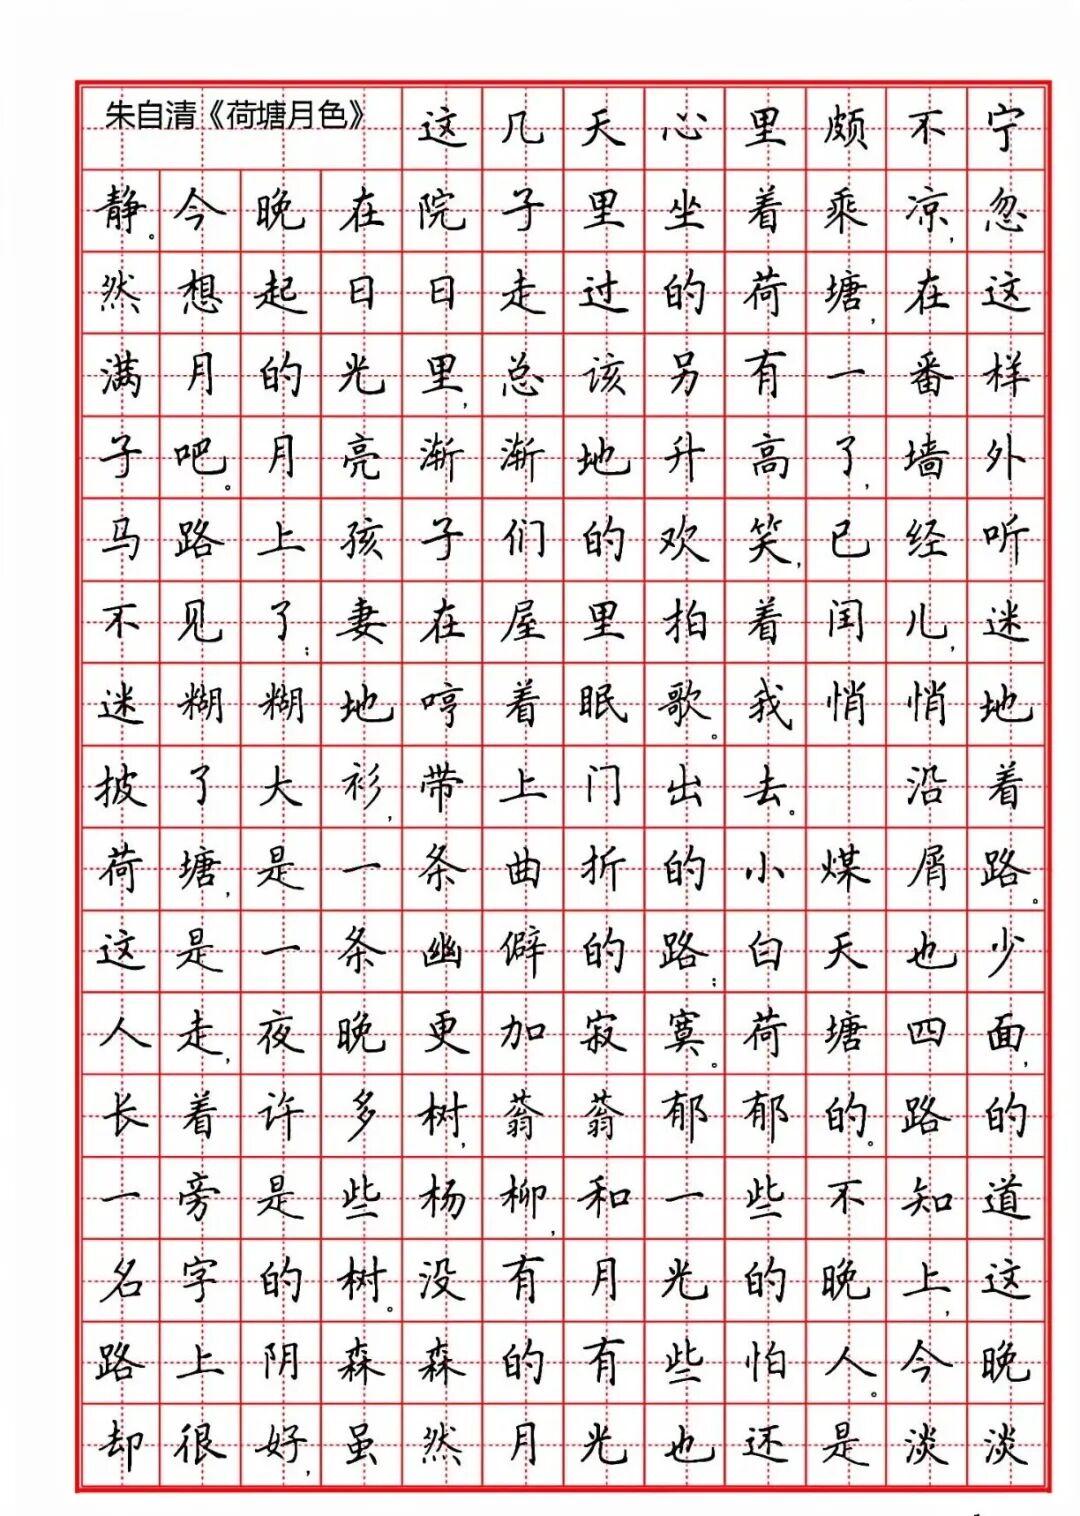 朱自清《荷塘月色》 这几天心里颇不宁
静。今晚在院子里坐着乘凉,忽
然想起日日走过的荷塘,在这
满月的光里,总该另有一番样
子吧。月亮渐渐地升高了,墙外
马路上孩子们的欢笑,已经听
不见了;妻在屋里拍着闰儿,迷
迷糊糊地哼着眠歌。我悄悄地
披了大衫,带上门出去。 沿着
荷塘,是一条曲折的小煤屑路。
这是一条幽僻的路;白天也少
人走,夜晚更加寂寞。荷塘四面,
长着许多树,蓊蓊郁郁的。路的
一旁是些杨柳,和一些不知道
名字的树。没有月光的晚上,这
路上阴森森的有些怕人。今晚
却很好,虽然月光也还是淡淡